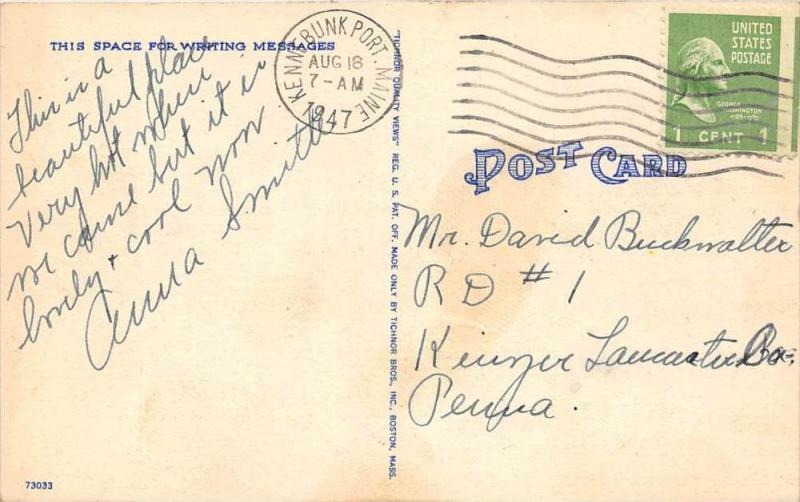 THIS SPACE FOR WRITING MESSAGES
This is a
beautiful place
Very hot when
we came but it is
lovely + cool now
Anna Smith
KENNEBUNK PORT. MAINE
AUG 18
7-AM
1947
"TICHNOR QUALITY VIEWS" REG. U. S. PAT. OFF. MADE ONLY BY TICHNOR BROS., INC., BOSTON, MASS.
UNITED
STATES
POSTAGE
GEORGE
WASHINGTON
1789-1797
1 CENT 1
POST CARD
Mr. David Buckwalter
RD #1
Kinzer Lancaster Co.
Penna.
73033